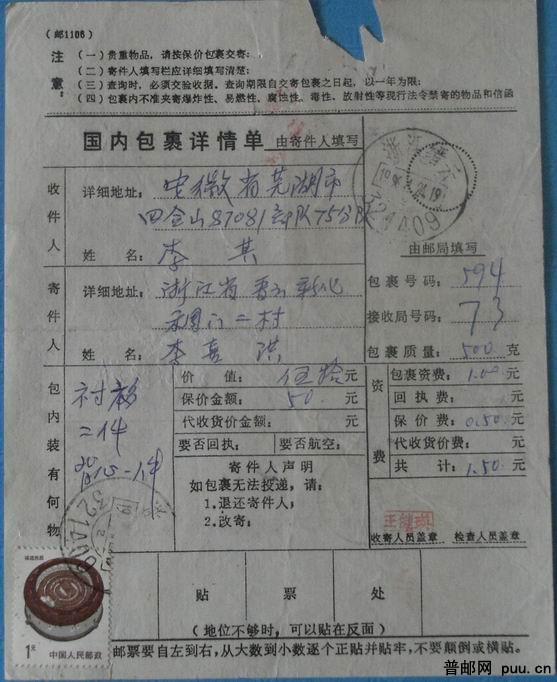 (邮1106)
注意：
(一) 贵重物品，请按保价包裹交寄：
(二) 寄件人填写栏应详细填写清楚：
(三) 查询时，必须交验收据。查询期限自交寄包裹之日起，以一年为限：
(四) 包裹内不准夹寄爆炸性、易燃性、腐蚀性、毒性、放射性等现行法令禁寄的物品和信函
国内包裹详情单 由寄件人填写
收件人
详细地址： 安徽省芜湖市
四合山87081部队75分队
姓 名： 李 其
由邮局填写
寄件人
详细地址： 浙江省
二村
姓 名： 李喜洪
包裹号码： 594
接收局号码： 73
包裹质量： 500 克
包内装有何物
衬衫
二件
背心一件
价 值： 伍拾 元
保价金额： 50 元
代收货价金额： 元
要否回执： 要否航空：
资费
包裹资费： 1.00 元
回执费： 元
保价费： 0.50 元
代收货价费： 元
共 计： 1.50 元
寄件人声明
如包裹无法投递，请：
1.退还寄件人；
2.改寄：
收寄人员盖章 检查人员盖章
321A09
321A09
贴 票 处
(地位不够时，可以贴在反面)
1元 中国人民邮政
邮票要自左到右，从大数到小数逐个正贴并贴牢，不要颠倒或横贴。
普邮网 puu.cn